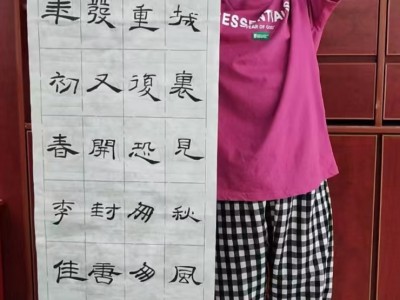 城裏見秋風
重復恐匆匆
發又開封唐
年初春李佳
ESSENTIALS